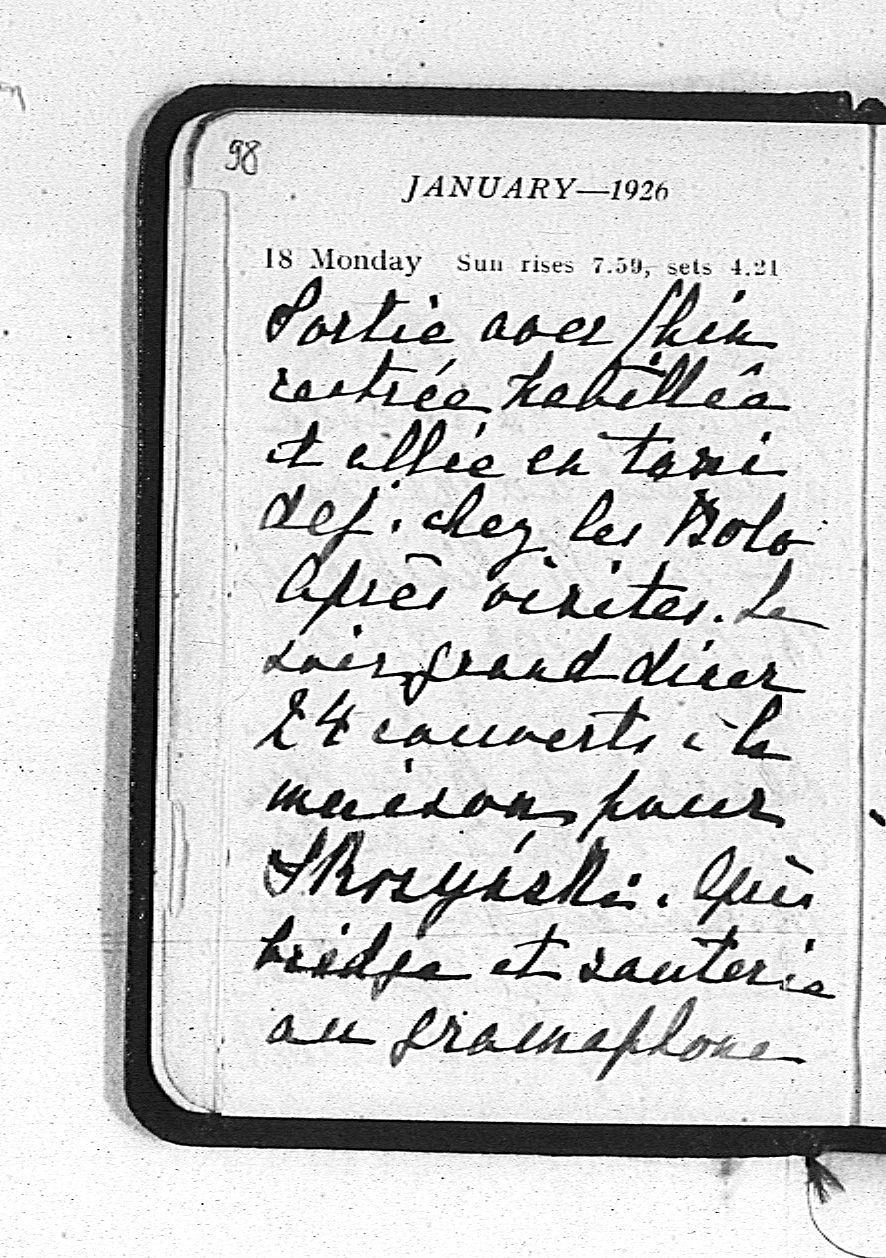 98
JANUARY—1926
18 Monday Sun rises 7.59, sets 4.21
Sortie avec
rentrée habillée
et allée en taxi
dej. chez les Bolo
Après visites. Le
soir grand diner
24 couverts à la
maison pour
Skrzyński. Après
bridge et sauterie
au gramophone